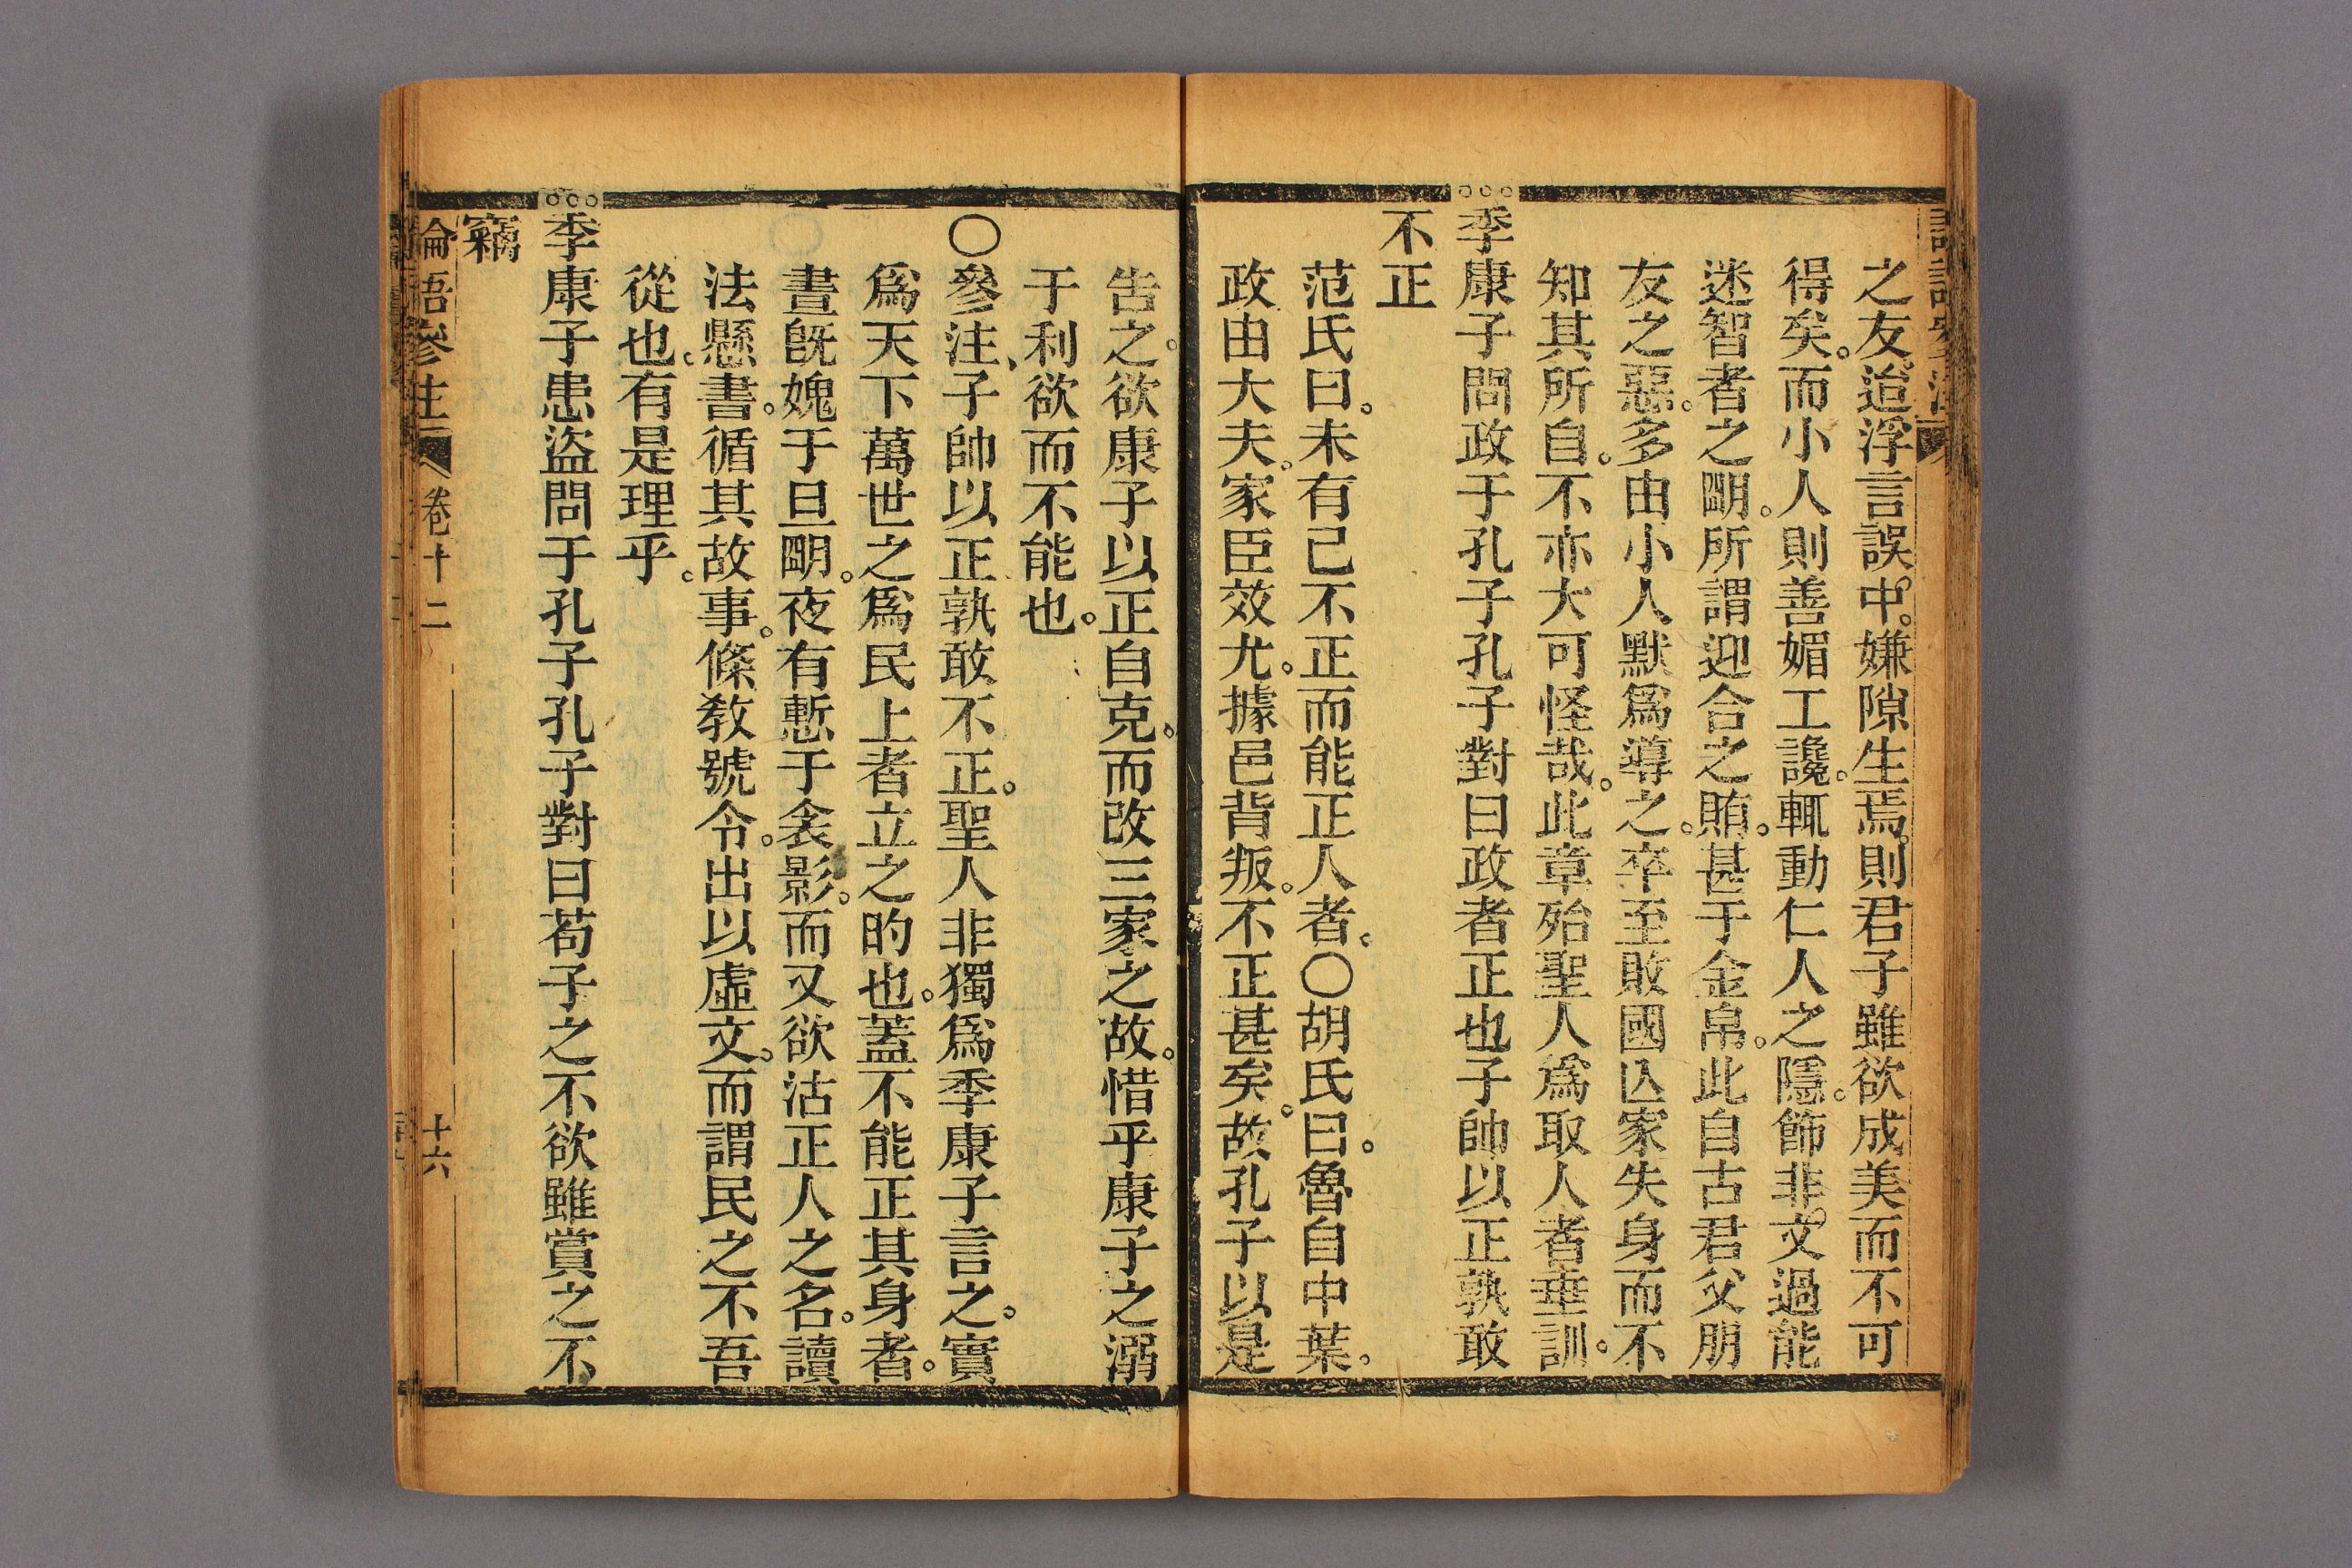 之友。迨浮言誤中。嫌隙生焉。則君子雖欲成美而不可
得矣。而小人則善媚工讒。輒動仁人之隱。飾非。文過。能
迷智者之朙。所謂迎合之賄。甚于金帛。此自古君父朋
友之惡。多由小人默爲導之。卒至敗國亾家失身而不
知其所自。不亦大可怪哉。此章殆聖人爲取人者垂訓。
季康子問政于孔子孔子對曰政者正也子帥以正孰敢
不正
范氏曰。未有己不正而能正人者。〇胡氏曰。魯自中葉。
政由大夫。家臣效尤。據邑背叛。不正甚矣。故孔子以是
告之。欲康子以正自克。而改三家之故。惜乎康子之溺
于利欲而不能也。
〇參注、子帥以正孰敢不正。聖人非獨爲季康子言之。實
爲天下萬世之爲民上者立之的也。蓋不能正其身者。
晝旣媿于旦朙。夜有慙于衾影。而又欲沽正人之名。讀
法懸書。循其故事。條教號令。出以虛文。而謂民之不吾
從也。有是理乎。
季康子患盜問于孔子孔子對曰苟子之不欲雖賞之不
竊
論語參注 卷十二 十六